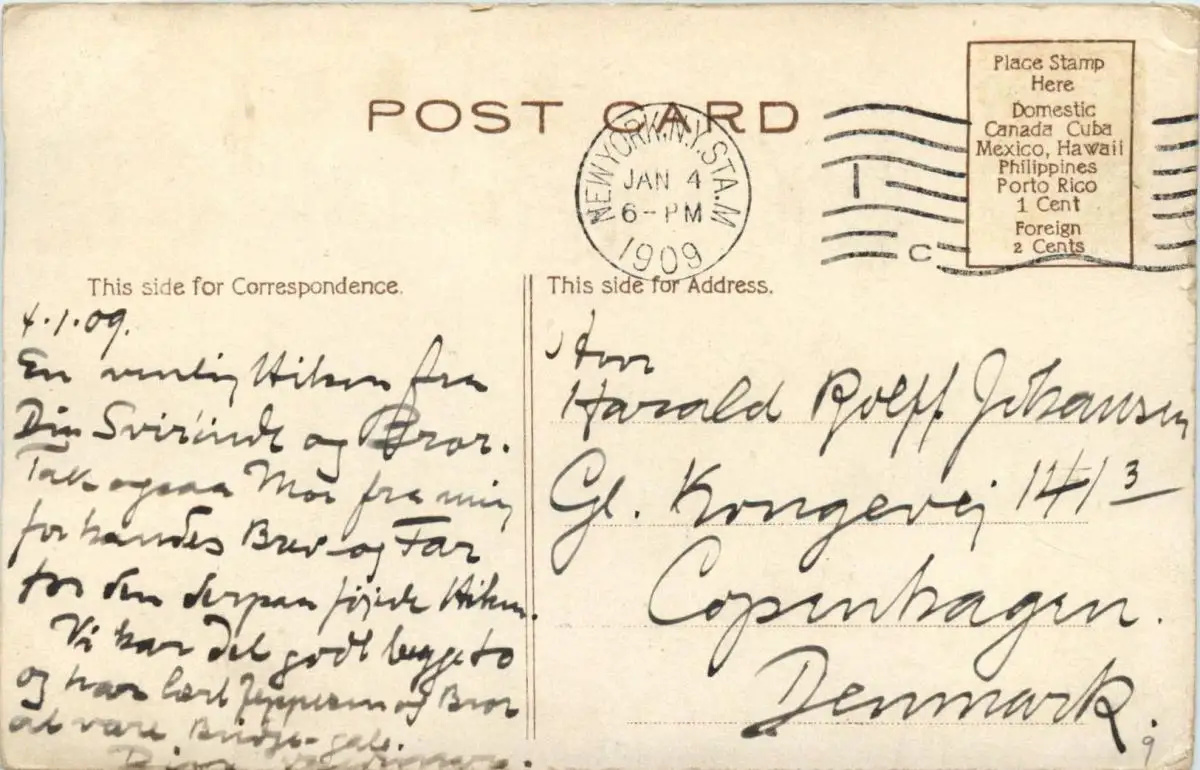 POST CARD
NEW YORK, N.Y. STA. M
JAN 4
6-PM
1909
1
C
Place Stamp
Here
Domestic
Canada Cuba
Mexico, Hawaii
Philippines
Porto Rico
1 Cent
Foreign
2 Cents
This side for Correspondence.
4.1.09.
En venlig Hilsen fra
Din Svigerinde og Bror.
Tak ogsaa Mor fra mig
for hendes Brev og Far
for den derpaa føjede Hilsen.
Vi har det godt begge to
og har lært Jeppesen og Bror
at være Bridge-gale.
This side for Address.
Herr
Harald Rolff Johansen
Gl. Kongevej 141 3
Copenhagen.
Denmark.
9